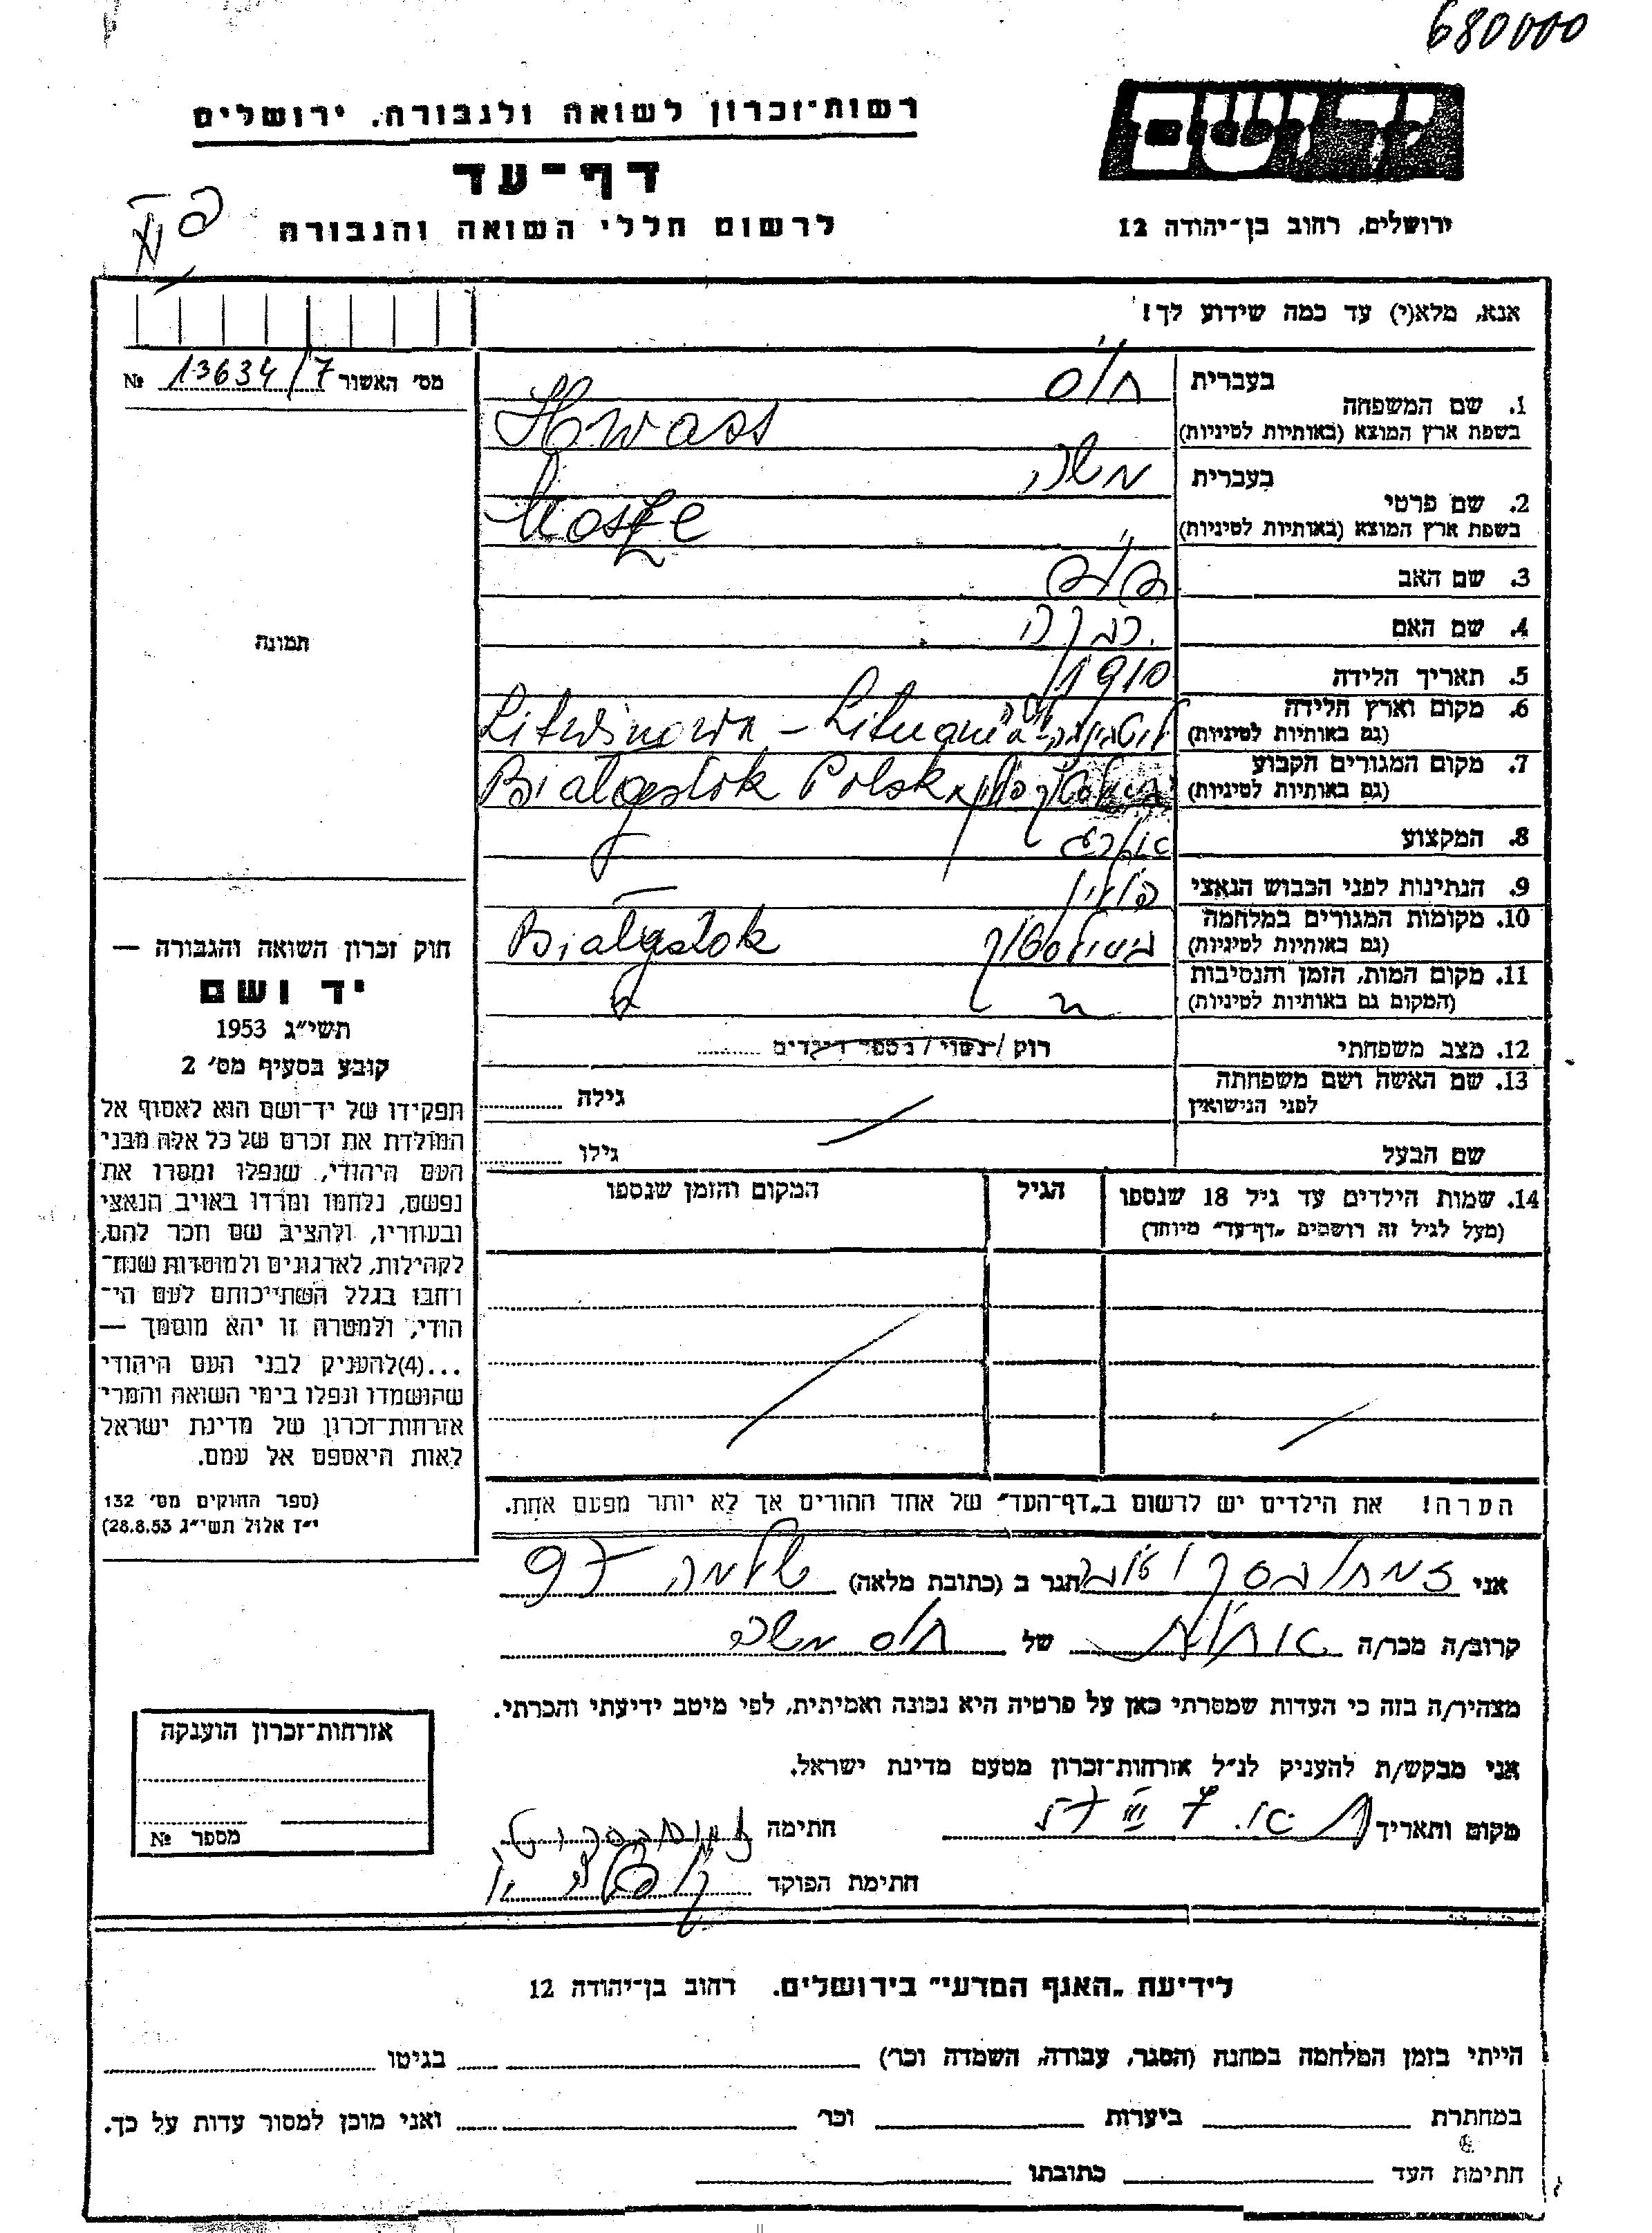 680000
רשות־זכרון לשואה ולגבורה, ירושלים
דף־עד
לרשום חללי השואה והגבורה
ירושלים, רחוב בן־יהודה 12
אנא, מלא(י) עד כמה שידוע לך!
מס׳ האשור 13634/7 №
1. שם המשפחה
בעברית
בשפת ארץ המוצא (באותיות לטיניות) Hwass
2. שם פרטי
בעברית משה
בשפת ארץ המוצא (באותיות לטיניות) Mosze
3. שם האב
4. שם האם רבקה
5. תאריך הלידה 1910
6. מקום וארץ הלידה
(גם באותיות לטיניות) Litwinowa - Lituania
7. מקום המגורים הקבוע
(גם באותיות לטיניות) Białystok Polska
8. המקצוע
9. הנתינות לפני הכבוש הנאצי פולין
10. מקומות המגורים במלחמה
(גם באותיות לטיניות) ביאליסטוק Białystok
11. מקום המות, הזמן והנסיבות
(המקום גם באותיות לטיניות)
12. מצב משפחתי רוק / נשוי / מספר הילדים
13. שם האשה ושם משפחתה
לפני הנישואין גילה
שם הבעל גילו
14. שמות הילדים עד גיל 18 שנספו הגיל המקום והזמן שנספו
(מעל לגיל זה רושמים „דף־עד״ מיוחד)
תמונה
חוק זכרון השואה והגבורה —
יד ושם
תשי״ג 1953
קובע בסעיף מס׳ 2
תפקידו של יד־ושם הוא לאסוף אל
המולדת את זכרם של כל אלה מבני
העם היהודי, שנפלו ומסרו את
נפשם, נלחמו ומרדו באויב הנאצי
ובעוזריו, ולהציב שם וזכר להם,
לקהילות, לארגונים ולמוסדות שנח־
רחבו בגלל השתייכותם לעם הי־
הודי, ולמטרה זו יהא מוסמך —
...(4)להעניק לבני העם היהודי
שהושמדו ונפלו בימי השואה והמרי
אזרחות־זכרון של מדינת ישראל
לאות היאספם אל עמם.
(ספר החוקים מס׳ 132
י״ז אלול תשי״ג 28.8.53)
הערה! את הילדים יש לרשום ב„דף־העד״ של אחד ההורים אך לא יותר מפעם אחת.
אני הגר ב (כתובת מלאה) שלמה 97
קרוב/ה מכר/ה של חוס משה
מצהיר/ה בזה כי העדות שמסרתי כאן על פרטיה היא נכונה ואמיתית, לפי מיטב ידיעתי והכרתי.
אני מבקש/ת להעניק לנ״ל אזרחות־זכרון מטעם מדינת ישראל.
מקום ותאריך חתימה
חתימת הפוקד
אזרחות־זכרון הוענקה
מספר №
לידיעת „האגף המדעי״ בירושלים. רחוב בן־יהודה 12
הייתי בזמן המלחמה במחנה (הסגר, עבודה, השמדה וכר׳) בגיטו
במחתרת ביערות וכר׳ ואני מוכן למסור עדות על כך.
חתימת העד כתובתו